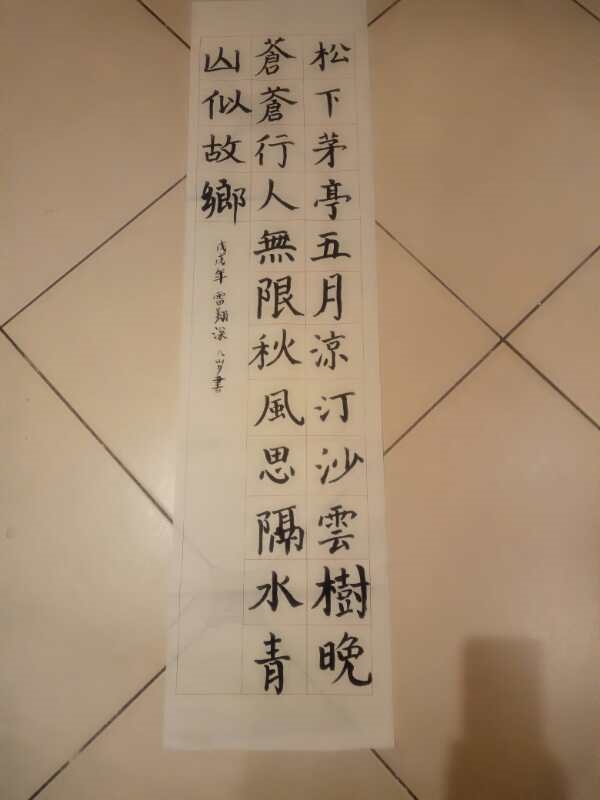 松下茅亭五月涼汀沙雲樹晚
蒼蒼行人無限秋風思隔水青
山似故鄉
戊戌年 雷翔深 書